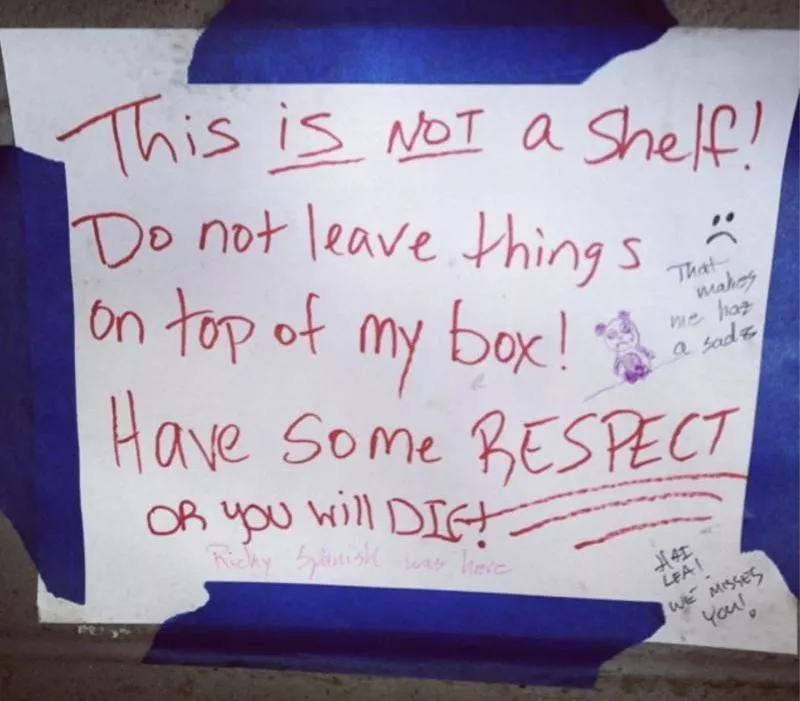 This is NOT a Shelf!
Do not leave things
on top of my box!
Have Some RESPECT
OR YOU Will DIE!
:(
That
makes
me haz
a sadz
Ricky Spanish was here
HAI
LEA!
WE MISSES
YOU!